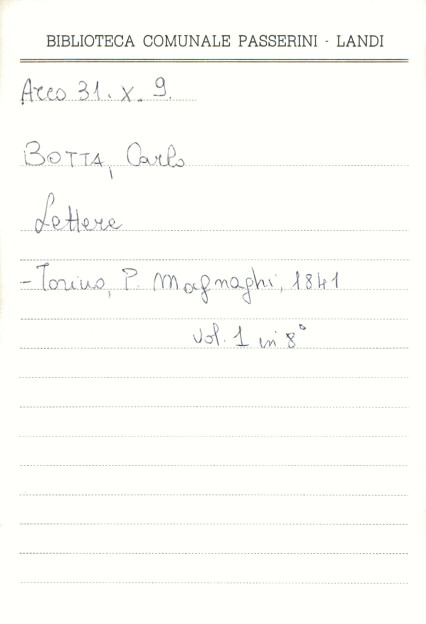 BIBLIOTECA COMUNALE PASSERINI - LANDI
Arco 31. X. 9.
BOTTA, Carlo
Lettere
- Torino, P. Magnaghi, 1841
vol. 1 in 8°